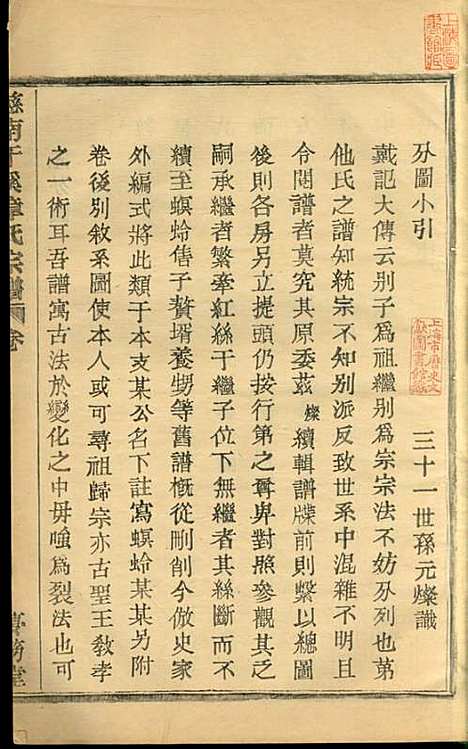 分圖小引
三十一世孫元燦識
戴記大傳云別子爲祖繼別爲宗宗法不妨分列也第
他氏之譜知統宗不知別派反致世系中混雜不明以
令閱譜者莫究其原委茲燦續輯譜牒前則繫以總圖
後則各房另立提頭仍按行第之尊卑對照參觀其
嗣承繼者繁牽紅絲于繼子位下無繼者其絲斷而不
續至螟蛉倩子贅壻養甥等舊譜槪從刪削今倣史家
外編式將此類于本支某公名下註寫螟蛉某某另附
卷後別敘系圖使本人或可尋祖歸宗亦古聖王敎孝
之一術耳吾譜寓古法於變化之中毋嗤爲裂法也可
慈南干溪章氏宗譜 卷
上海市歷史文獻圖書館藏